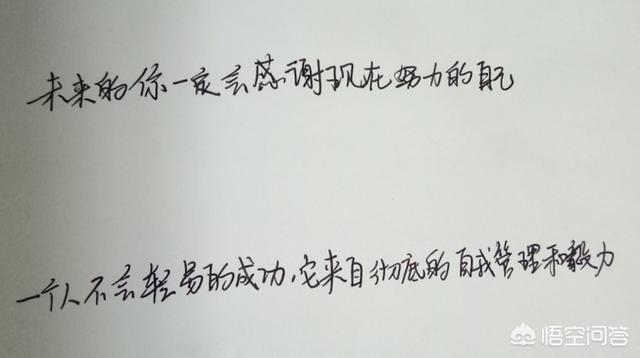 未来的你一定会感谢现在努力的自己
一个人不会轻易的成功,它来自彻底的自我管理和毅力
悟空问答